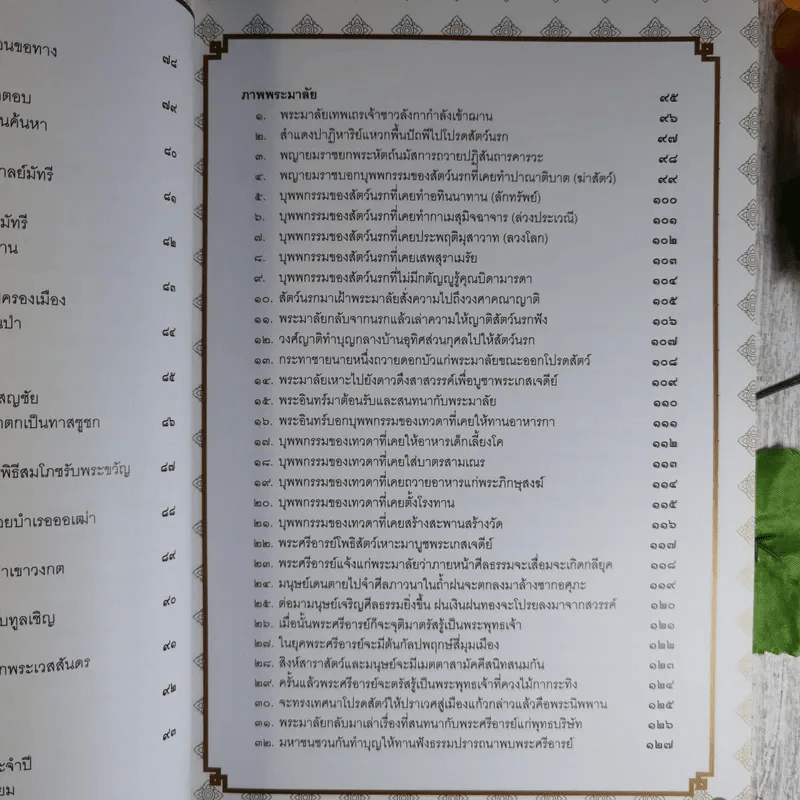 วนขอทาง
๗๘
วตอบ
๗๙
นค้นหา
๘๐
าลย์มัทรี
๘๑
มัทรี
๘๒
าน
๘๓
ปครองเมือง
๘๔
๘๕
สญชัย
๘๖
าตกเป็นทาสชูชก
พิธีสมโภชรับพระขวัญ ๘๗
๘๘
อยบำเรอออเฒ่า
๘๙
าเขาวงกต
๙๐
ับทูลเชิญ
๙๑
กพระเวสสันดร
๙๒
๙๓
ะจำปี
ยม
ภาพพระมาลัย ๙๕
๑. พระมาลัยเทพเถรเจ้าชาวลังกากำลังเข้าฌาน ๙๖
๒. สำแดงปาฏิหาริย์แหวกพื้นปัถพีไปโปรดสัตว์นรก ๙๗
๓. พญายมราชยกพระหัตถ์นมัสการถวายปฏิสันถารคารวะ ๙๘
๔. พญายมราชบอกบุพพกรรมของสัตว์นรกที่เคยทำปาณาติบาต (ฆ่าสัตว์) ๙๙
๕. บุพพกรรมของสัตว์นรกที่เคยทำอทินนาทาน (ลักทรัพย์) ๑๐๐
๖. บุพพกรรมของสัตว์นรกที่เคยทำกาเมสุมิจฉาจาร (ล่วงประเวณี) ๑๐๑
๗. บุพพกรรมของสัตว์นรกที่เคยประพฤติมุสาวาท (ลวงโลก) ๑๐๒
๘. บุพพกรรมของสัตว์นรกที่เคยเสพสุราเมรัย ๑๐๓
๙. บุพพกรรมของสัตว์นรกที่ไม่มีกตัญญูรู้คุณบิดามารดา ๑๐๔
๑๐. สัตว์นรกมาเฝ้าพระมาลัยสั่งความไปถึงวงศาคณาญาติ ๑๐๕
๑๑. พระมาลัยกลับจากนรกแล้วเล่าความให้ญาติสัตว์นรกฟัง ๑๐๖
๑๒. วงศ์ญาติทำบุญกลางบ้านอุทิศส่วนกุศลไปให้สัตว์นรก ๑๐๗
๑๓. กระทาชายนายหนึ่งถวายดอกบัวแก่พระมาลัยขณะออกโปรดสัตว์ ๑๐๘
๑๔. พระมาลัยเหาะไปยังดาวดึงสาสวรรค์เพื่อบูชาพระเกสเจดีย์ ๑๐๙
๑๕. พระอินทร์มาต้อนรับและสนทนากับพระมาลัย ๑๑๐
๑๖. พระอินทร์บอกบุพพกรรมของเทวดาที่เคยให้ทานอาหารกา ๑๑๑
๑๗. บุพพกรรมของเทวดาที่เคยให้อาหารเด็กเลี้ยงโค ๑๑๒
๑๘. บุพพกรรมของเทวดาที่เคยใส่บาตรสามเณร ๑๑๓
๑๙. บุพพกรรมของเทวดาที่เคยถวายอาหารแก่พระภิกษุสงฆ์ ๑๑๔
๒๐. บุพพกรรมของเทวดาที่เคยตั้งโรงทาน ๑๑๕
๒๑. บุพพกรรมของเทวดาที่เคยสร้างสะพานสร้างวัด ๑๑๖
๒๒. พระศรีอารย์โพธิสัตว์เหาะมาบูชพระเกสเจดีย์ ๑๑๗
๒๓. พระศรีอารย์แจ้งแก่พระมาลัยว่าภายหน้าศีลธรรมจะเสื่อมจะเกิดกลียุค ๑๑๘
๒๔. มนุษย์เดนตายไปจำศีลภาวนาในถ้ำฝนจะตกลงมาล้างซากอศุภะ ๑๑๙
๒๕. ต่อมามนุษย์เจริญศีลธรรมยิ่งขึ้น ฝนเงินฝนทองจะโปรยลงมาจากสวรรค์ ๑๒๐
๒๖. เมื่อนั้นพระศรีอารย์ก็จะจุติมาตรัสรู้เป็นพระพุทธเจ้า ๑๒๑
๒๗. ในยุคพระศรีอารย์จะมีต้นกัลปพฤกษ์สี่มุมเมือง ๑๒๒
๒๘. สิงห์สาราสัตว์และมนุษย์จะมีเมตตาสามัคคีสนิทสนมกัน ๑๒๓
๒๙. ครั้นแล้วพระศรีอารย์จะตรัสรู้เป็นพระพุทธเจ้าที่ควงไม้กากระทิง ๑๒๔
๓๐. จะทรงเทศนาโปรดสัตว์ให้ปราเวศสู่เมืองแก้วกล่าวแล้วคือพระนิพพาน ๑๒๕
๓๑. พระมาลัยกลับมาเล่าเรื่องที่สนทนากับพระศรีอารย์แก่พุทธบริษัท ๑๒๖
๓๒. มหาชนชวนกันทำบุญให้ทานฟังธรรมปรารถนาพบพระศรีอารย์ ๑๒๗